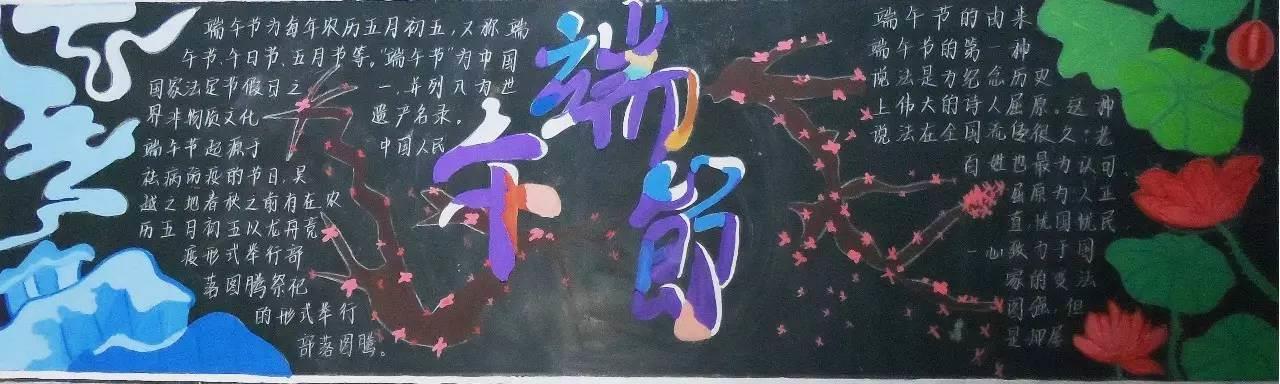 端午节为每年农历五月初五,又称端
午节、午日节、五月节等。“端午节”为中国
国家法定节假日之一,并列入为世
界非物质文化遗产名录。
端午节起源于中国人民
祛病防疫的节日,吴
越之地春秋之前有在农
历五月初五以龙舟竞
渡形式举行部
落图腾祭祀
的形式举行
部落图腾。
端午节
端午节的由来
端午节的第一种
说法是为纪念历史
上伟大的诗人屈原。这种
说法在全国流传很久;老
百姓也最为认可。
屈原为人正
直,忧国忧民,
一心致力于国
家的变法
图强,但
是却屡